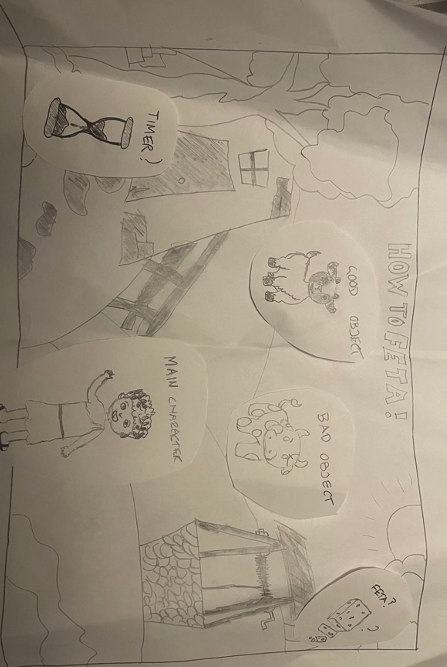 HOW TO FETA!
TIMER?
GOOD OBJECT
BAD OBJECT
FETA?
?
MAIN CHARACTER